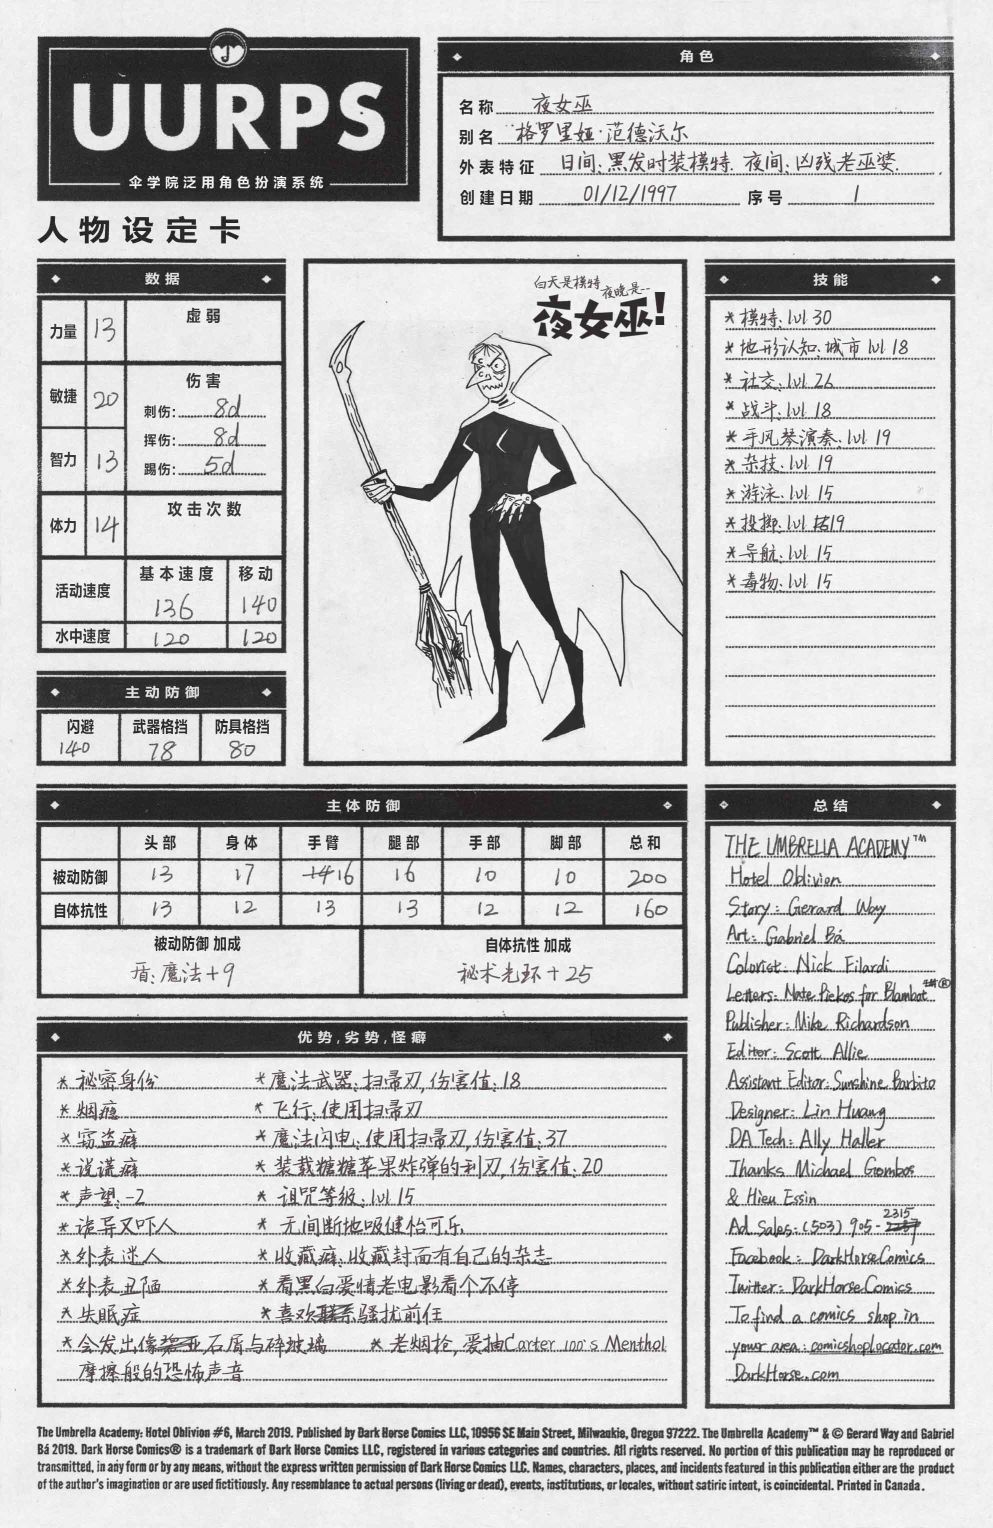 UURPS
伞学院泛用角色扮演系统
人物设定卡
角色
名称 夜女巫
别名 格罗里娅·范德沃尔
外表特征 日间:黑发时装模特. 夜间:凶残老巫婆.
创建日期 01/12/1997 序号 1
数据
力量 13 虚弱
敏捷 20 伤害
刺伤: 8d
挥伤: 8d
智力 13 踢伤: 5d
体力 14 攻击次数
活动速度 基本速度 136 移动 140
水中速度 120 120
主动防御
闪避 武器格挡 防具格挡
140 78 80
白天是模特 夜晚是--
夜女巫!
技能
*模特: lvl 30
*地形认知:城市 lvl 18
*社交: lvl 26
*战斗: lvl 18
*手风琴演奏: lvl 19
*杂技: lvl 19
*游泳: lvl 15
*投掷: lvl 19
*导航: lvl 15
*毒物: lvl 15
主体防御
头部 身体 手臂 腿部 手部 脚部 总和
被动防御 13 17 14 16 16 10 10 200
自体抗性 13 12 13 13 12 12 160
被动防御 加成 自体抗性 加成
盾:魔法+9 秘术光环+25
优势,劣势,怪癖
*秘密身份 *魔法武器:扫帚刃,伤害值:18
*烟瘾 *飞行:使用扫帚刃
*窃盗癖 *魔法闪电:使用扫帚刃,伤害值:37
*说谎癖 *装载糖糖苹果炸弹的利刃,伤害值:20
*声望:-2 *诅咒等级:lvl 15
*诡异又吓人 *无间断地吸健怡可乐
*外表迷人 *收藏癖:收藏封面有自己的杂志
*外表丑陋 *看黑白爱情老电影看个不停
*失眠症 *喜欢联系骚扰前任
*会发出像石屑与碎玻璃 *老烟枪,爱抽Carter 100's Menthol
摩擦般的恐怖声音
总结
THE UMBRELLA ACADEMY™
Hotel Oblivion
Story: Gerard Way
Art: Gabriel Bá
Colorist: Nick Filardi
Letters: Nate Piekos for Blambot®
Publisher: Mike Richardson
Editor: Scott Allie
Assistant Editor: Sunshine Barbito
Designer: Lin Huang
DA Tech: Ally Haller
Thanks Michael Gombos
& Hieu Essin
2315
Ad Sales: (503) 905-2237
Facebook: DarkHorseComics
Twitter: DarkHorseComics
To find a comics shop in
your area: comicshoplocator.com
DarkHorse.com
The Umbrella Academy: Hotel Oblivion #6, March 2019. Published by Dark Horse Comics LLC, 10956 SE Main Street, Milwaukie, Oregon 97222. The Umbrella Academy™ & © Gerard Way and Gabriel
Bá 2019. Dark Horse Comics® is a trademark of Dark Horse Comics LLC, registered in various categories and countries. All rights reserved. No portion of this publication may be reproduced or
transmitted, in any form or by any means, without the express written permission of Dark Horse Comics LLC. Names, characters, places, and incidents featured in this publication either are the product
of the author's imagination or are used fictitiously. Any resemblance to actual persons (living or dead), events, institutions, or locales, without satiric intent, is coincidental. Printed in Canada.